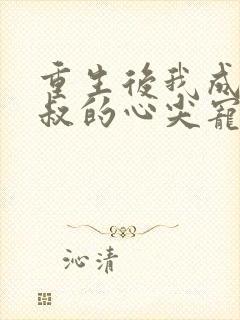 重生後我成
叔的心尖寵
沁清